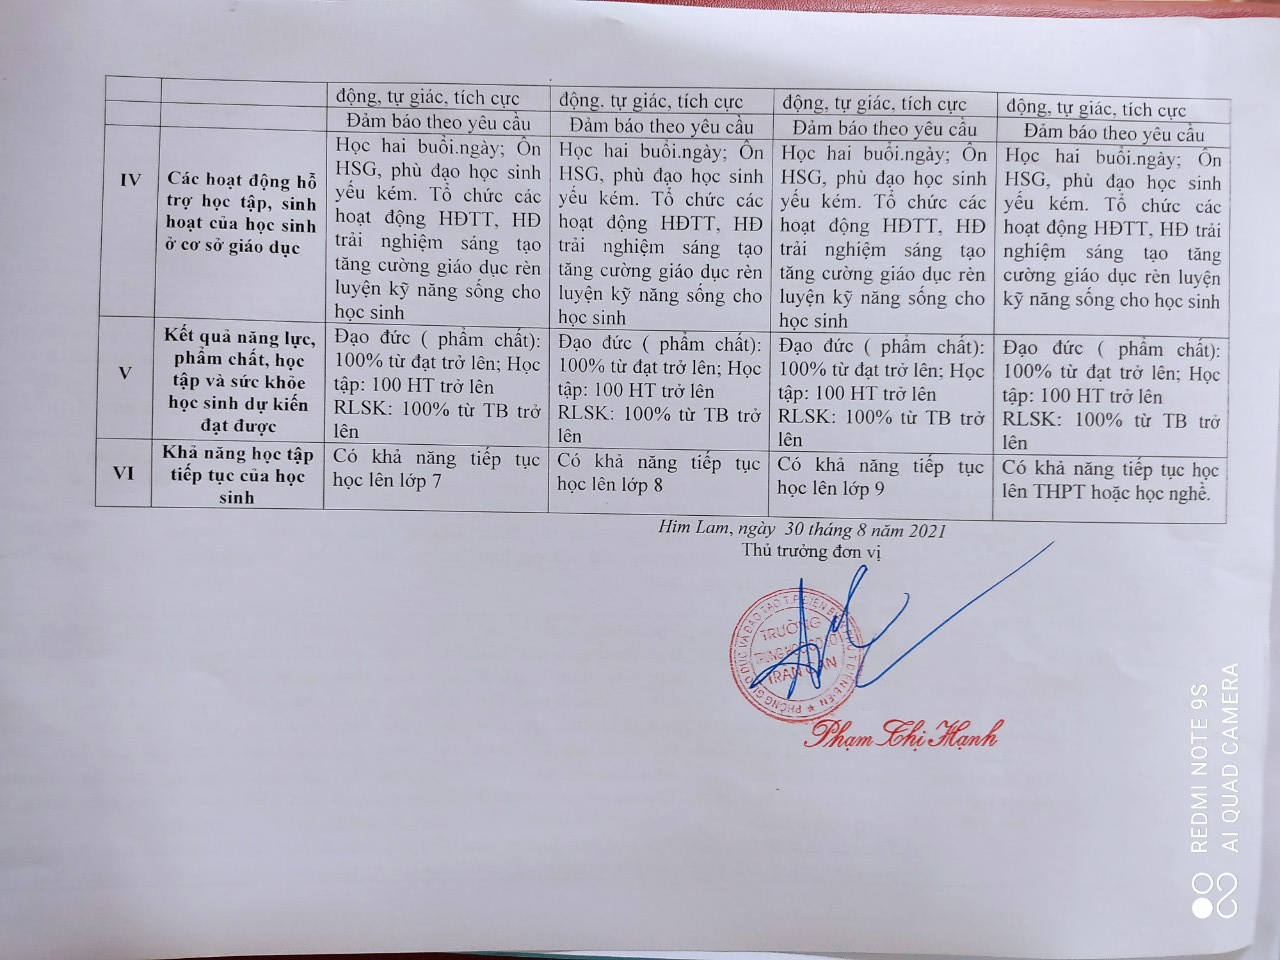 động, tự giác, tích cực
động, tự giác, tích cực
động, tự giác, tích cực
động, tự giác, tích cực
Đảm bảo theo yêu cầu
Đảm bảo theo yêu cầu
Đảm bảo theo yêu cầu
Đảm bảo theo yêu cầu
IV
Các hoạt động hỗ
trợ học tập, sinh
hoạt của học sinh
ở cơ sở giáo dục
Học hai buổi.ngày; Ôn
HSG, phù đạo học sinh
yếu kém. Tổ chức các
hoạt động HĐTT, HĐ
trải nghiệm sáng tạo
tăng cường giáo dục rèn
luyện kỹ năng sống cho
học sinh
Học hai buổi.ngày; Ôn
HSG, phù đạo học sinh
yếu kém. Tổ chức các
hoạt động HĐTT, HĐ
trải nghiệm sáng tạo
tăng cường giáo dục rèn
luyện kỹ năng sống cho
học sinh
Học hai buổi.ngày; Ôn
HSG, phù đạo học sinh
yếu kém. Tổ chức các
hoạt động HĐTT, HĐ
trải nghiệm sáng tạo
tăng cường giáo dục rèn
luyện kỹ năng sống cho
học sinh
Học hai buổi.ngày; Ôn
HSG, phù đạo học sinh
yếu kém. Tổ chức các
hoạt động HĐTT, HĐ trải
nghiệm sáng tạo tăng
cường giáo dục rèn luyện
kỹ năng sống cho học sinh
V
Kết quả năng lực,
phẩm chất, học
tập và sức khỏe
học sinh dự kiến
đạt được
Đạo đức ( phẩm chất):
100% từ đạt trở lên; Học
tập: 100 HT trở lên
RLSK: 100% từ TB trở
lên
Đạo đức ( phẩm chất):
100% từ đạt trở lên; Học
tập: 100 HT trở lên
RLSK: 100% từ TB trở
lên
Đạo đức ( phẩm chất):
100% từ đạt trở lên; Học
tập: 100 HT trở lên
RLSK: 100% từ TB trở
lên
Đạo đức ( phẩm chất):
100% từ đạt trở lên; Học
tập: 100 HT trở lên
RLSK: 100% từ TB trở
lên
VI
Khả năng học tập
tiếp tục của học
sinh
Có khả năng tiếp tục
học lên lớp 7
Có khả năng tiếp tục
học lên lớp 8
Có khả năng tiếp tục
học lên lớp 9
Có khả năng tiếp tục học
lên THPT hoặc học nghề.
Him Lam, ngày 30 tháng 8 năm 2021
Thủ trưởng đơn vị
TRƯỜNG
TRẦN CAN
Phạm Thị Hạnh
REDMI NOTE 9S
AI QUAD CAMERA